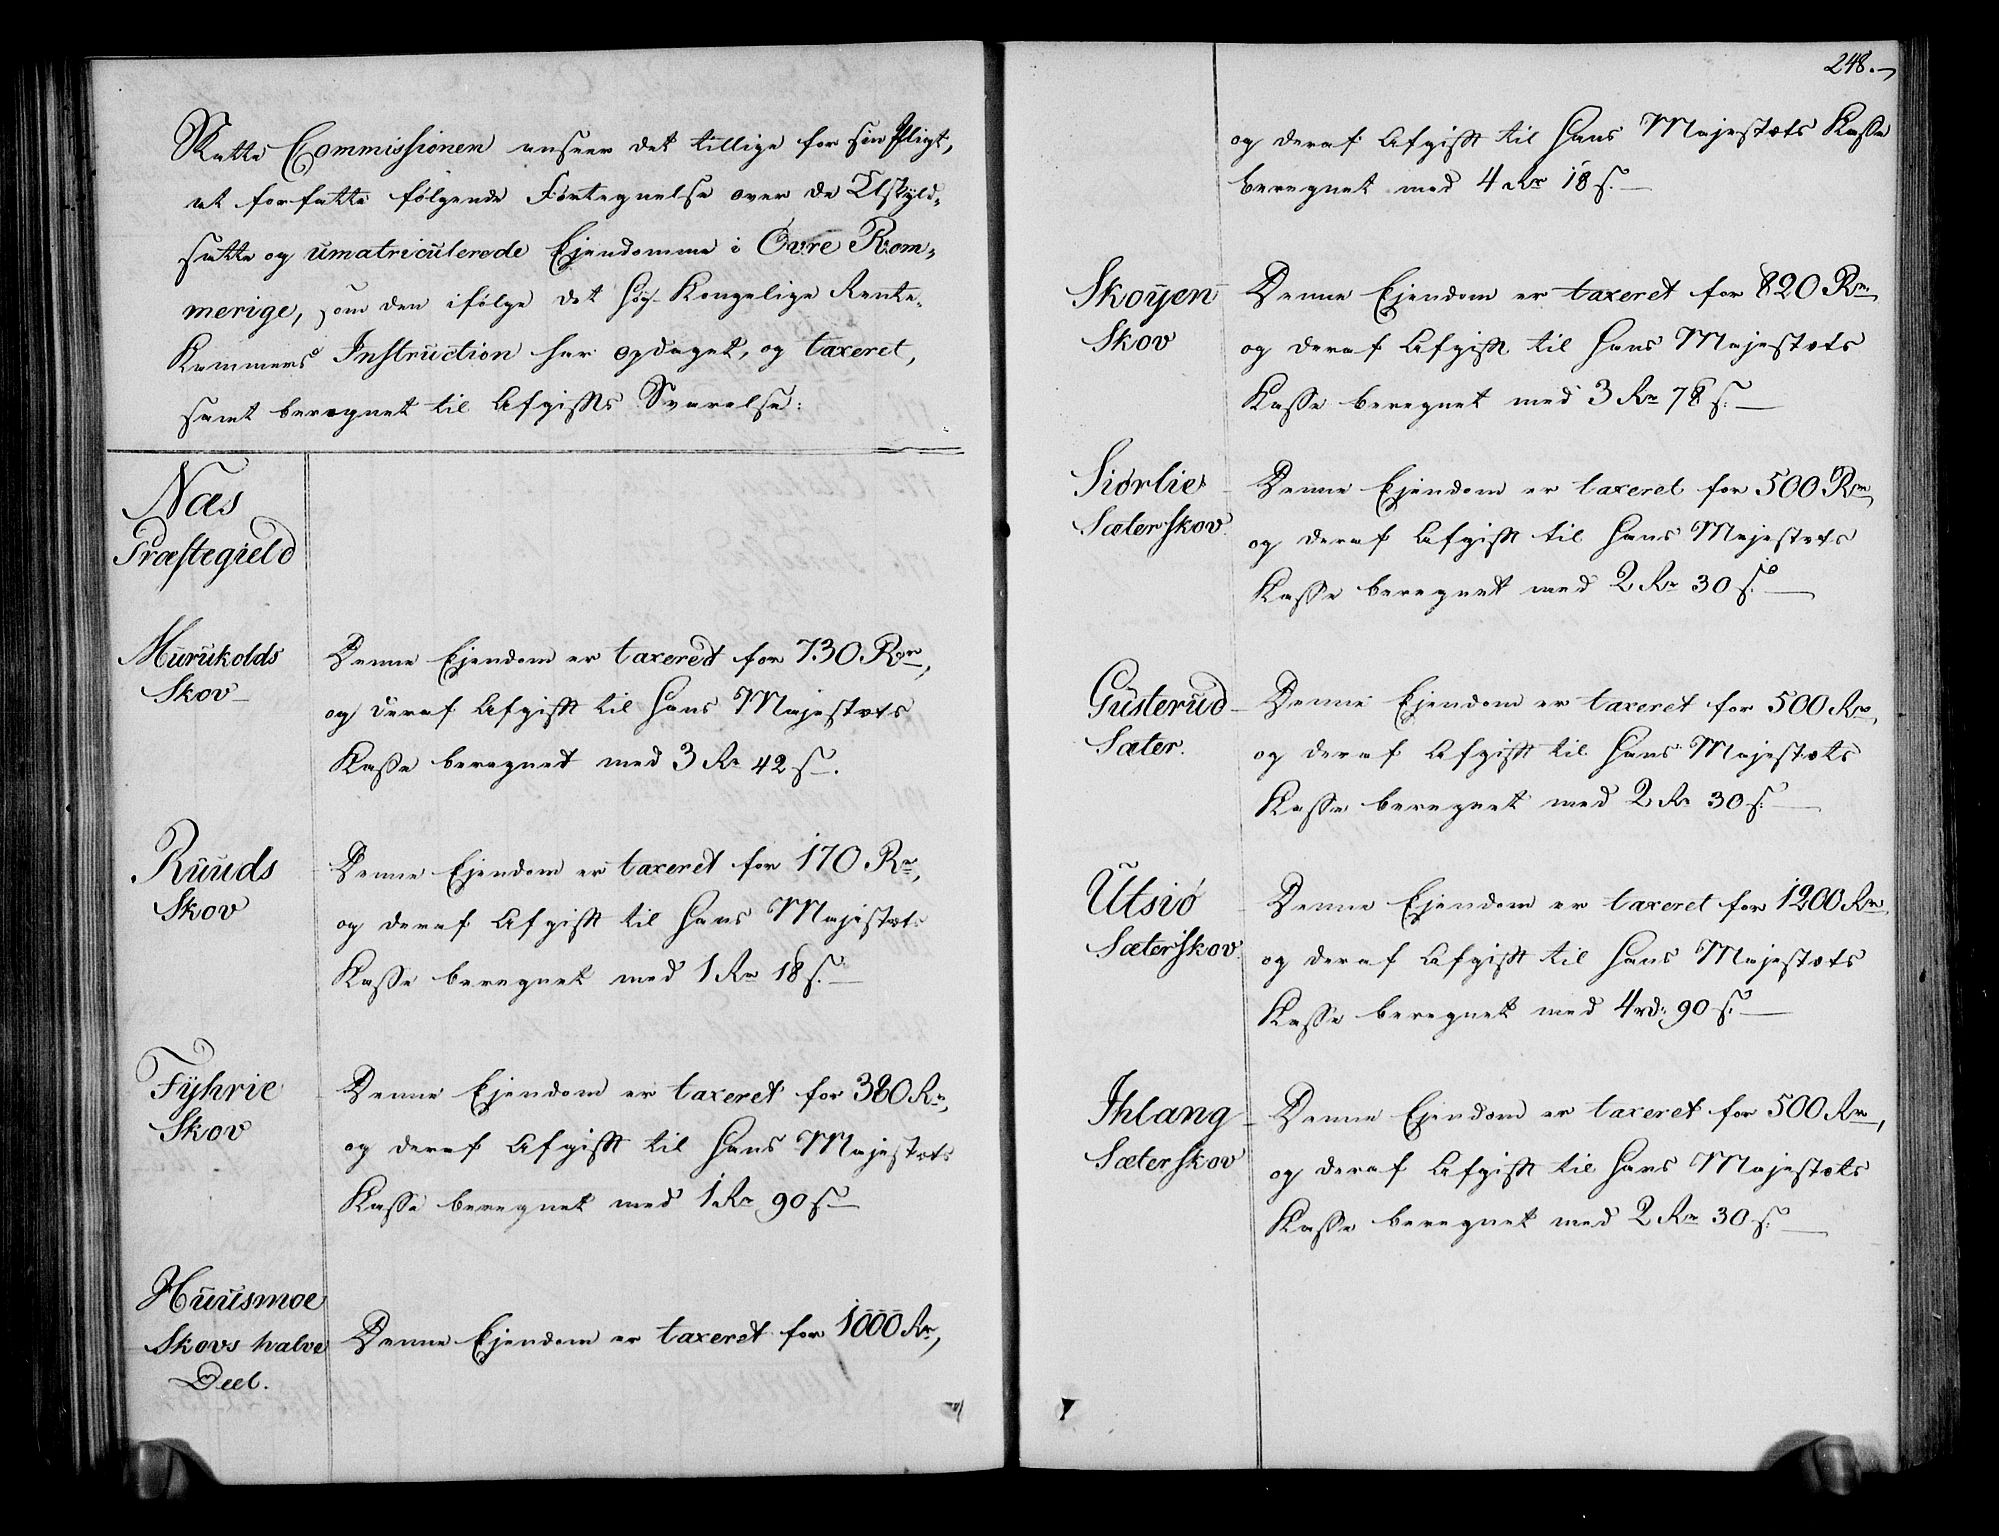 Skatte Commissionen anseer det tillige for sin Pligt,
at forfatte følgende Fortegnelse over de Uskyld-
satte og umatriculerede Ejendomme i Øvre Rom-
merige, som den ifølge det Høy Kongelige Rente-
Kammers Instruction har opdaget, og taxeret,
samt beregnet til Afgifts Svarelse:
Næs
Præstegield
Murukolds
Skov
Denne Ejendom er taxered for 730 Rdr,
og deraf Afgift til Hans Majestæts
Kasse beregnet med 3 Rd 42 s.
Ruuds
Skov
Denne Ejendom er taxeret for 170 Rd,
og deraf Afgift til Hans Majestæts
Kasse beregnet med 1 Rd 18 s.
Fyhrie
Skov
Denne Ejendom er taxeret for 380 Rd,
og deraf Afgift til Hans Majestæts
Kasse beregnet med 1 Rd 90 s
Huusmoe
Skovs halve
Deel.
Denne Ejendom er taxeret for 1000 Rd,
248.
og deraf Afgift til Hans Majestæts Kasse
beregnet med 4 Rdr 18 s.
Skoyen
Skov
Denne Ejendom er taxeret for 820 Rdr,
og deraf Afgift til Hans Majestæts
Kasse beregnet med 3 Rd 78 s.
Siørlie
Sæterskov
Denne Ejendom er taxeret for 500 Rdr,
og deraf Afgift til Hans Majestæts
Kasse beregnet med 2 Rd 30 s.
Gusterud
Sæter.
Denne Ejendom er taxeret for 500 Rdr,
og deraf Afgift til Hans Majestæts
Kasse beregnet med 2 Rd 30 s.
Utsiø
Sæterskov
Denne Ejendom er taxeret for 1200 Rdr,
og deraf Afgift til Hans Majestæts
Kasse beregnet med 4 rd: 90 s.
Ihlang
Sæterskov
Denne Ejendom er taxeret for 500 Rdr,
og deraf Afgift til Hans Majestæts
Kasse beregnet med 2 Rd 30 s.